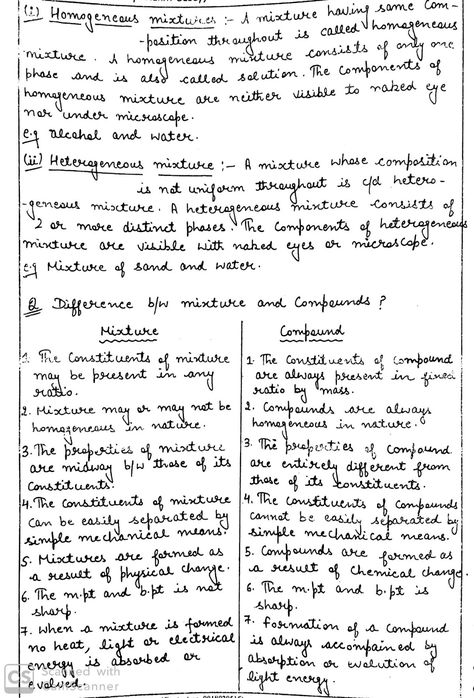 (i) Homogeneous mixtures :- A mixture having same com-
-position throughout is called homogeneous
mixture. A homogeneous mixture consists of only one
phase and is also called solution. The components of
homogeneous mixture are neither visible to naked eye
nor under microscope.
e.g alcohol and water.
(ii) Heterogeneous mixture :- A mixture whose composition
is not uniform throughout is c/d hetero-
-geneous mixture. A heterogeneous mixture consists of
2 or more distinct phases. The components of heterogeneous
mixture are visible with naked eyes or microscope.
e.g Mixture of sand and water.
Q Difference b/w mixture and Compounds ?
Mixture
1. The constituents of mixture
may be present in any
ratio.
2. Mixture may or may not be
homogeneous in nature.
3. The properties of mixture
are midway b/w those of its
constituents.
4. The constituents of mixture
can be easily separated by
simple mechanical means.
5. Mixtures are formed as
a result of physical change.
6. The m.pt and b.pt is not
sharp.
7. When a mixture is formed
no heat, light or electrical
energy is absorbed or
evolved.
Compound
1. The constituents of compound
are always present in fixed
ratio by mass.
2. Compounds are always
homogeneous in nature.
3. The properties of compound
are entirely different from
those of its constituents.
4. The constituents of compounds
cannot be easily separated by
simple mechanical means.
5. Compounds are formed as
a result of chemical change.
6. The m.pt and b.pt is
sharp.
7. Formation of a compound
is always accompained by
absorption or evolution of
light energy.
CS Scanned with
CamScanner